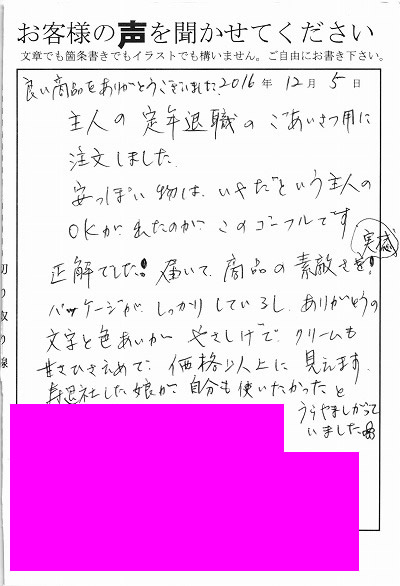 お客様の声を聞かせてください
文章でも箇条書きでもイラストでも構いません。ご自由にお書き下さい。
良い商品をありがとうございました。2016年 12月 5日
主人の定年退職のごあいさつ用に
注文しました。
安っぽい物は、いやだという主人の
OKが出たのが、このゴーフルです
正解でした! 届いて、商品の素敵さを! 実感
パッケージが、しっかりしているし、ありがとうの
文字と色あいが やさしげで、クリームも
甘さひかえめで、価格以上に見えます。
寿退社した娘が、自分も使いたかったと
うらやましがって
いました
切り取り線